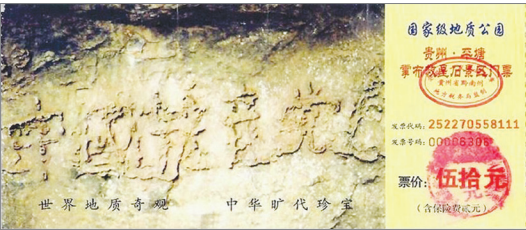 中國共產党
世界地质奇观 中华旷代珍宝
国家级地质公园
贵州·平塘
掌布 景区门票
贵州省黔南州
发票代码: 252270558111
发票号码: 00006306
票价: 伍拾元
(含保险费贰元)